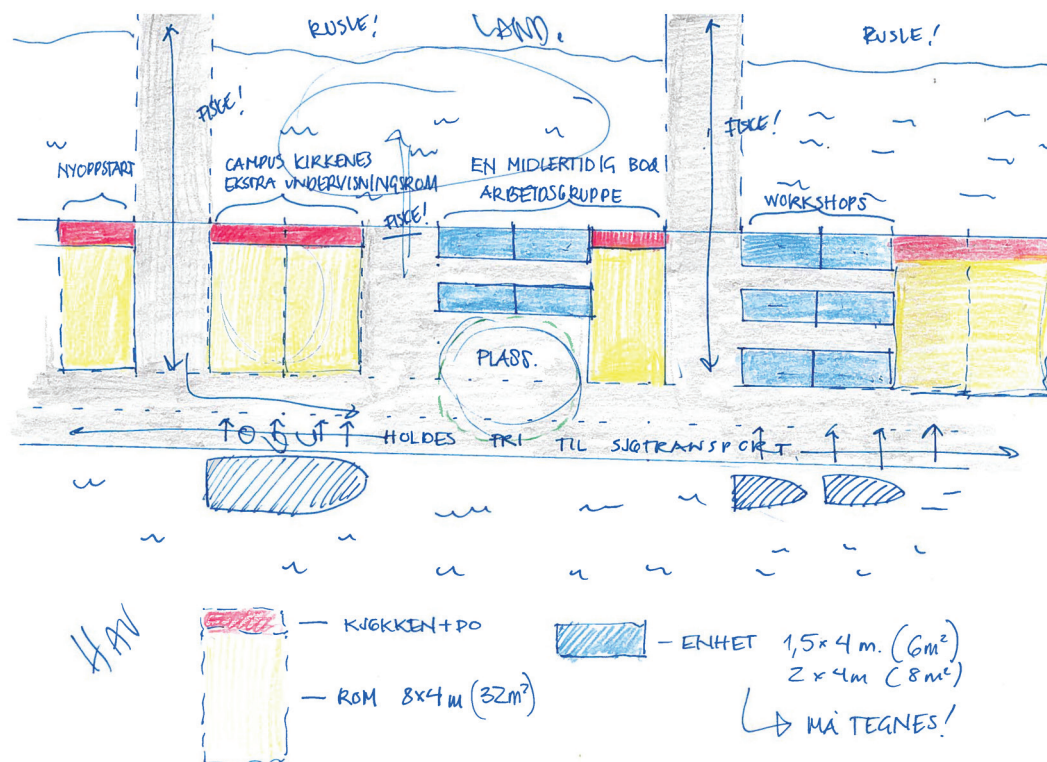 RUSLE!
LAND.
RUSLE!
FISKE!
FISKE!
NYOPPSTART
CAMPUS KIRKENES
EKSTRA UNDERVISNINGSROM
FISKE!
EN MIDLERTIDIG BOLIG
ARBEIDSGRUPPE
WORKSHOPS
PLASS.
HOLDES FRI TIL SJØTRANSPORT.
HAV
KJØKKEN+DO
ROM 8x4m (32m²)
ENHET 1,5x4m. (6m²)
2x4m (8m²)
MÅ TEGNES!